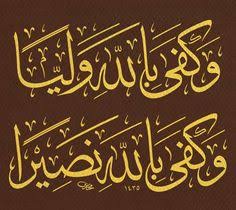 وَكَفَىٰ بِاللَّهِ وَلِيًّا
وَكَفَىٰ بِاللَّهِ نَصِيرًا
١٤٣٥